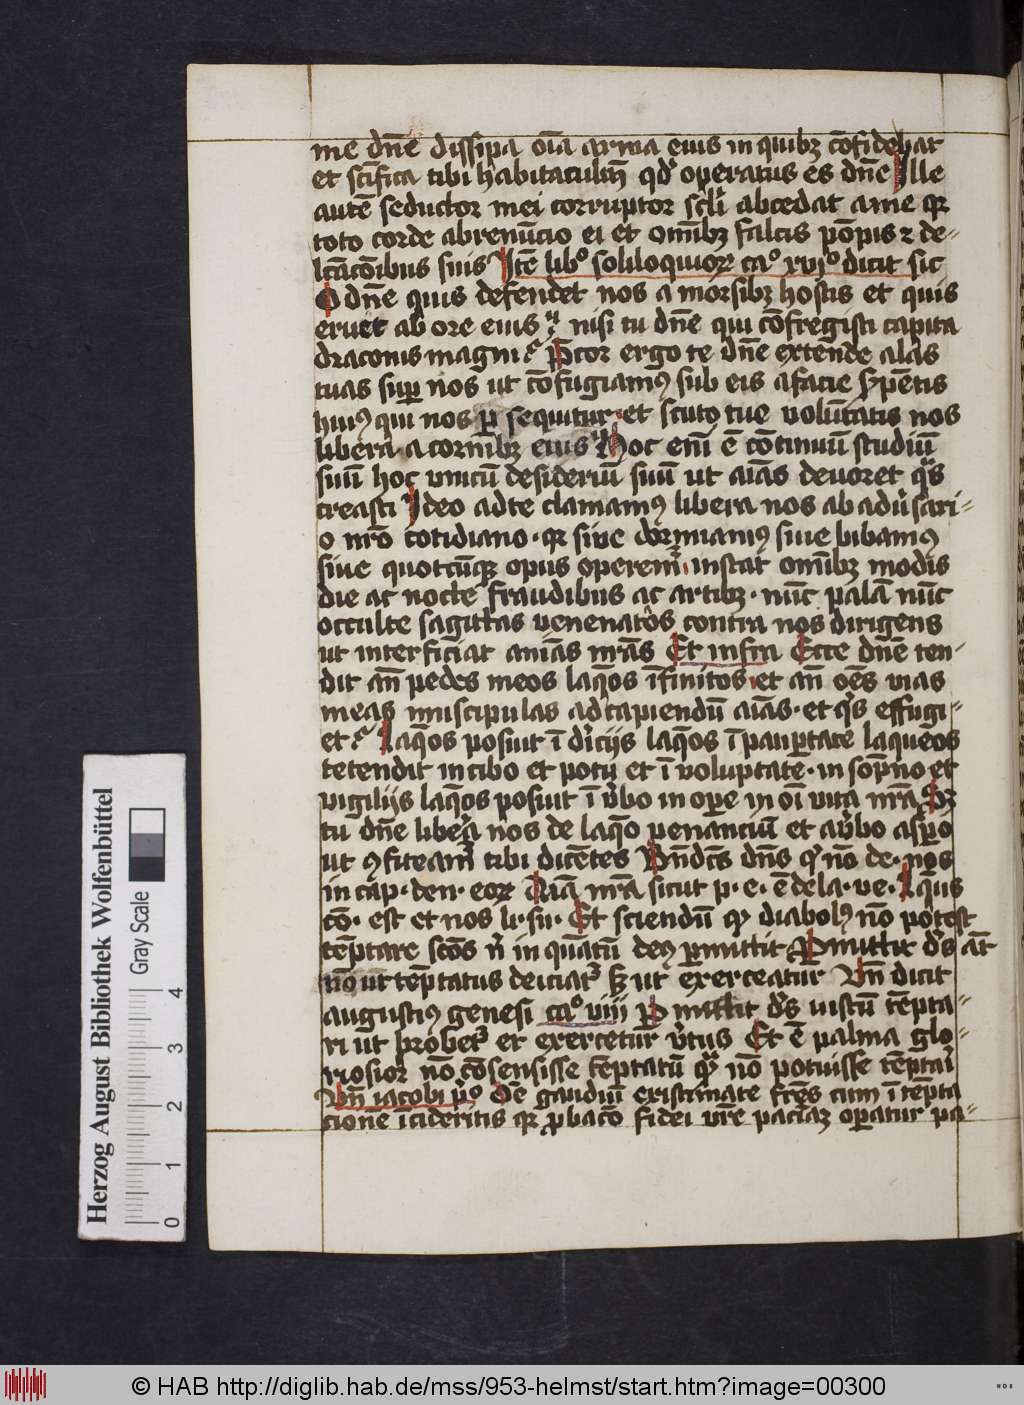 me dn̄e dissipa oīa arma eius in quibꝫ cōfidebat
et scīfica tibi habitaculū qd' operatus es dn̄e Ille
autē seductor mei corruptor scl̄i abcedat a me qꝛ
toto corde abrenūcio ei et om̄ibꝫ falcis pōpis ⁊ de⸗
lc̄acōibus suis Itē libº soliloquioꝝ caº xvjº dicit sic
O dn̄e quis defendet nos a morsibꝫ hostis et quis
eruet ab ore eius nisi tu dn̄e qui cōfregisti capita
draconis magni P̄cor ergo te dn̄e extende alas
tuas suꝑ nos ut cōfugiamꝰ sub eis a facie s̄pētis
huiꝰ qui nos ꝑ sequitur et scuto tue volūtatis nos
libera a cornibꝫ eius Hoc em̄ ē cōtinuū studiū
suū hoc vnicū desideriū suū ut aīas deuoret qͣs
creasti Ideo ad te clamamꝰ libera nos ab adu'sari⸗
o nr̄o cotidiano · qꝛ siue dormiamꝰ siue bibamꝰ
siue quotcūqꝫ opus operem̄ instat om̄ibꝫ modis
die ac nocte fraudibus ac artibꝫ · nūc palā nūc
occulte sagittas venenatos contra nos dirigens
ut interficiat animās nr̄as Et infra Ecce dn̄e ten⸗
dit an̄ pedes meos laq̄os īfinitos et an̄ oēs vias
meas muscipulas ad capiendū aīas · et q's effugi⸗
et Laq̄os posuit ī diu'cijs laq̄os ī pauꝑtate laqueos
tetendit in cibo et potu et ī voluptate · in sop̄no et
vigilijs laq̄os posuit ī v'bo in oꝑe in oī vita nr̄a Sꝫ
tu dn̄e libera nos de laq̄o venanciū et a v'bo asꝑo
ut ꝯfiteam̄ tibi dicētes Bn̄dc̄s dn̄s q' nō de · nos
in cap · den · eoꝝ Aīa nr̄a sicut p · e · ē de la · ve · laq̄us
cō · est et nos li · su · Et sciendū ꝙ diabolꝰ nō potest
tēptare scōs n' in quātū deꝰ ꝑmittit Pmittit d's aūt
nō ut tēptatus deiciat' sꝫ ut exerceatur Vn̄ dicit
augustiꝰ genesi caº viij Pmittit d's iustū tēpta⸗
ri ut probet' et exercetur v'tus Et ē palma glo⸗
riosior nō cōsensisse tēptatū qͣꝫ nō potuisse tēptari
Vn̄ iacobi pº Oē gaudiū existimate fr̄es cum ī tēpta
cionē īcideritis qꝛ ꝓbacō fidei vr̄e paciāꝫ oꝑatur pa⸗
Herzog August Bibliothek Wolfenbüttel
Gray Scale
0 1 2 3 4
© HAB http://diglib.hab.de/mss/953-helmst/start.htm?image=00300